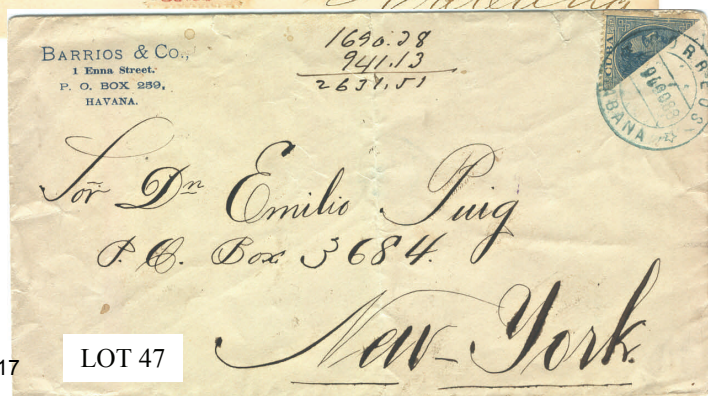 BARRIOS & CO.,
1 Enna Street.
P. O. BOX 259,
HAVANA.
1690.38
941.13
2631.51
CUBA
CORREOS
HABANA
Sor Dn Emilio Puig
P.O. Box 3684.
New-York
17
LOT 47